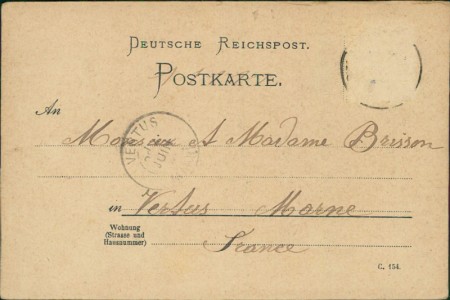 DEUTSCHE REICHSPOST.
POSTKARTE.
An
Monsieur et Madame Brisson
VERTUS
JUIN
in Vertus Marne
Wohnung
(Strasse und
Hausnummer)
France
C. 154.